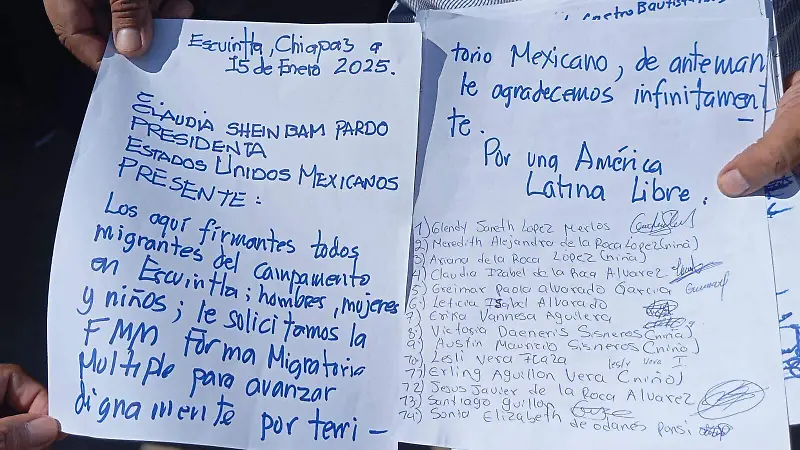 Escuintla, Chiapas a
15 de Enero 2025.
CLAUDIA SHEINBAM PARDO
PRESIDENTA
ESTADOS UNIDOS MEXICANOS
PRESENTE:
Los aquí firmantes todos
migrantes del campamento
en Escuintla; hombres, mujeres
y niños; le solicitamos la
FMM Forma Migratoria
Multiple para avanzar
dignamente por terri-
Castro Bautista
torio Mexicano, de anteman
le agradecemos infinitamen
te.
Por una América
Latina Libre.
1) Glendy Saneth Lopez Merlos
2) Meredith Alejandra de la Roca Lopez (niña)
3) Ariana de la Roca Lopez (niña)
4) Claudia Izabel de la Roca Alvarez
5) Greimar Paola alvarado Garcia
6) Leticia Isabel Alvarado
7) Erika Vannesa Aguilera
8) Victoria Daeneris Sisneros (niña)
9) Austin Mauricio Sisneros (niño)
10) Lesli Vera
11) Erling Aguillon Vera (niño)
12) Jesus Javier de la Roca Alvarez
13) Santiago Guillon
14) Sonia Elizabeth de